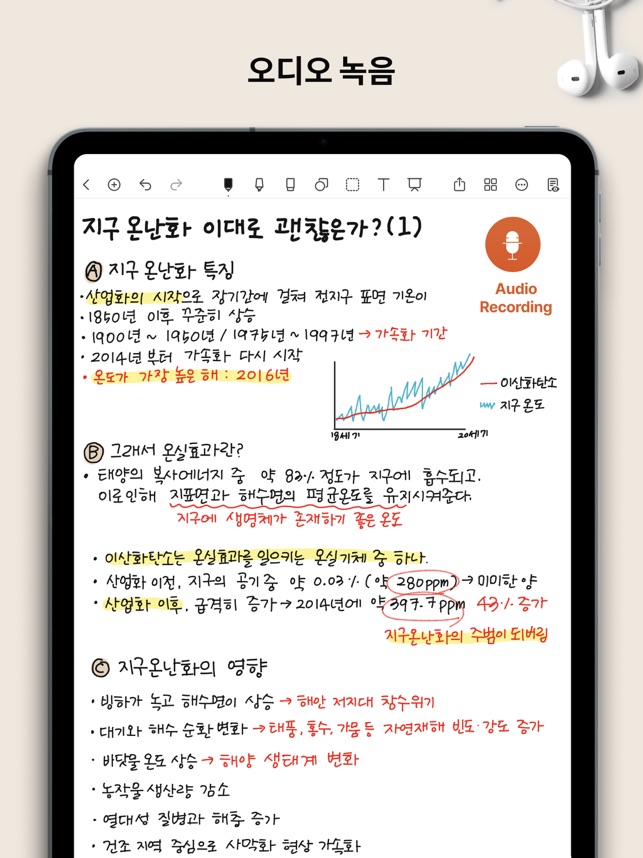 오디오 녹음
지구 온난화 이대로 괜찮은가? (1)
Audio
Recording
Ⓐ 지구 온난화 특징
• 산업화의 시작으로 장기간에 걸쳐 전지구 표면 기온이
• 1850년 이후 꾸준히 상승
• 1900년 ~ 1950년 / 1975년 ~ 1997년 → 가속화 기간
• 2014년 부터 가속화 다시 시작
• 온도가 가장 높은 해 : 2016년
이산화탄소
지구 온도
18세기
20세기
Ⓑ 그래서 온실효과란?
• 태양의 복사에너지 중 약 83% 정도가 지구에 흡수되고.
이로인해 지표면과 해수면의 평균온도를 유지시켜준다.
지구에 생명체가 존재하기 좋은 온도
• 이산화탄소는 온실효과를 일으키는 온실기체 중 하나.
• 산업화 이전, 지구의 공기 중 약 0.03% (약 280ppm) → 미미한 양
• 산업화 이후, 급격히 증가 → 2014년에 약 397.7ppm 43% 증가
지구온난화의 주범이 되버림
Ⓒ 지구온난화의 영향
• 빙하가 녹고 해수면이 상승 → 해안 저지대 침수위기
• 대기와 해수 순환 변화 → 태풍, 홍수, 가뭄 등 자연재해 빈도·강도 증가
• 바닷물 온도 상승 → 해양 생태계 변화
• 농작물 생산량 감소
• 열대성 질병과 해충 증가
• 건조 지역 중심으로 사막화 현상 가속화